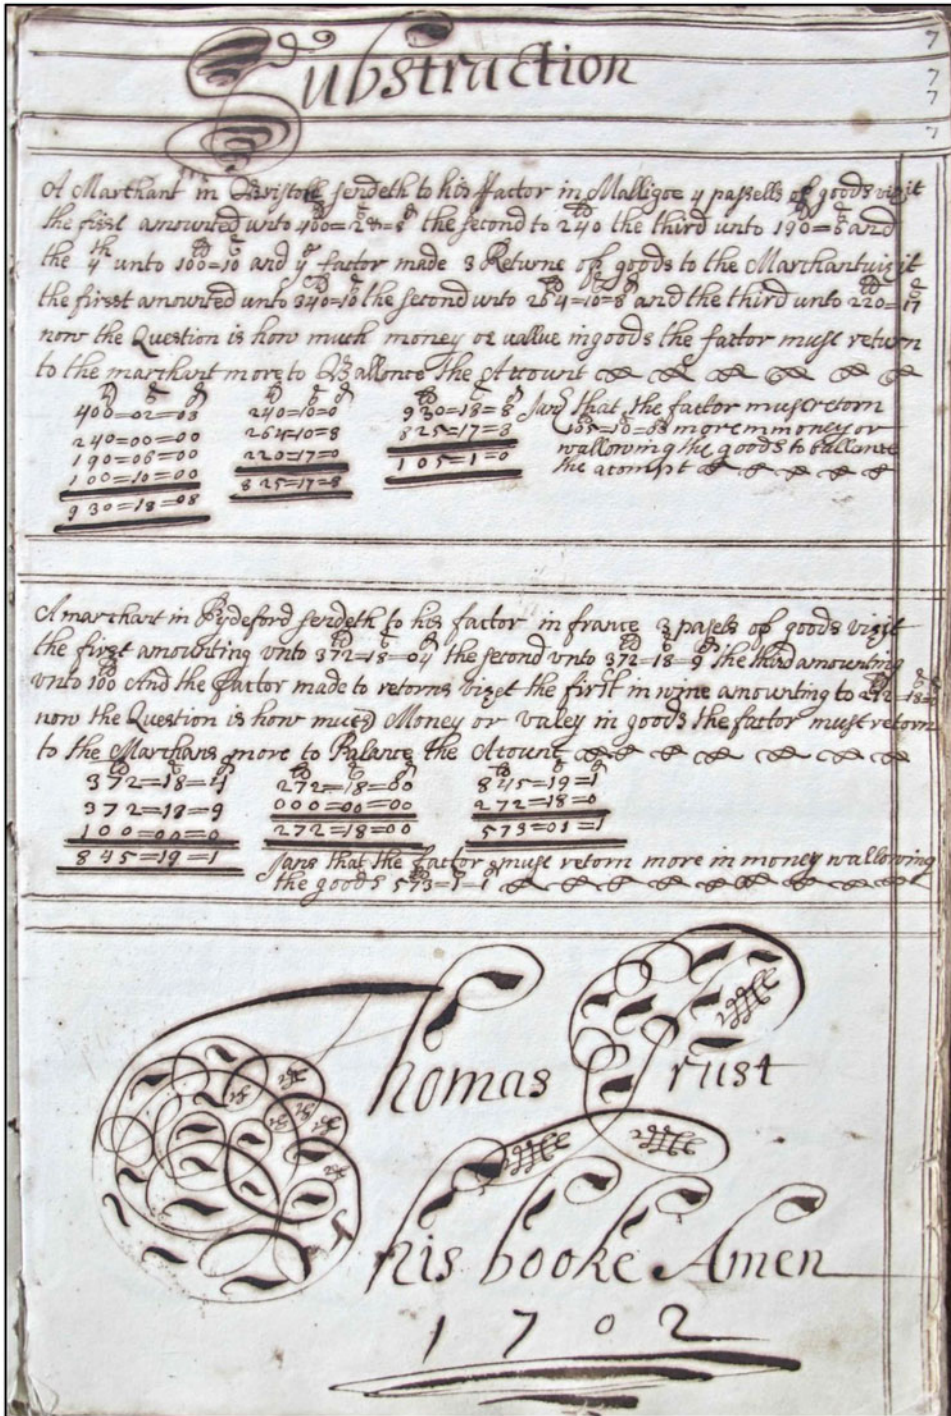 Substruction
7
7
7
7
A Marchant in Bristoll sendeth to his factor in Malligoe 4 passells of goods vizit
the first amounted unto 400=2=8 the second to 240 the third unto 190=6 and
the 4th unto 100=10 and ye factor made 3 Returne of goods to the Marchant vizit
the first amounted unto 340=10 the second unto 264=10=8 and the third unto 220=17
now the Question is how much money or vallue in goods the factor must return
to the marchant more to Ballonce the Account
400=02=03 240=10=0 930=18=8 that the factor must retorn
240=00=00 264=10=8 825=17=8 more in money or
190=06=00 220=17=0 105=1=0 wallowing the goods to ballance
100=10=00 825=17=8 the acompt
930=18=08
A marchant in Bydeford sendeth to his factor in france 3 pasels of goods vizit
the first amounting vnto 372=18=04 the second vnto 372=18=9 the third amounting
vnto 100 And the factor made to retorns vizet the first in wine amounting to 272=18=0
now the Question is how much Money or valey in goods the factor must retorn
to the Marchans more to Balance the Acount
372=18=4 272=18=00 845=19=1
372=18=9 000=00=00 272=18=0
100=00=0 272=18=00 573=01=1
845=19=1 Jans that the factor must return more in money wallowing
the goods 573=1=1
Thomas Trust
his booke Amen
1702